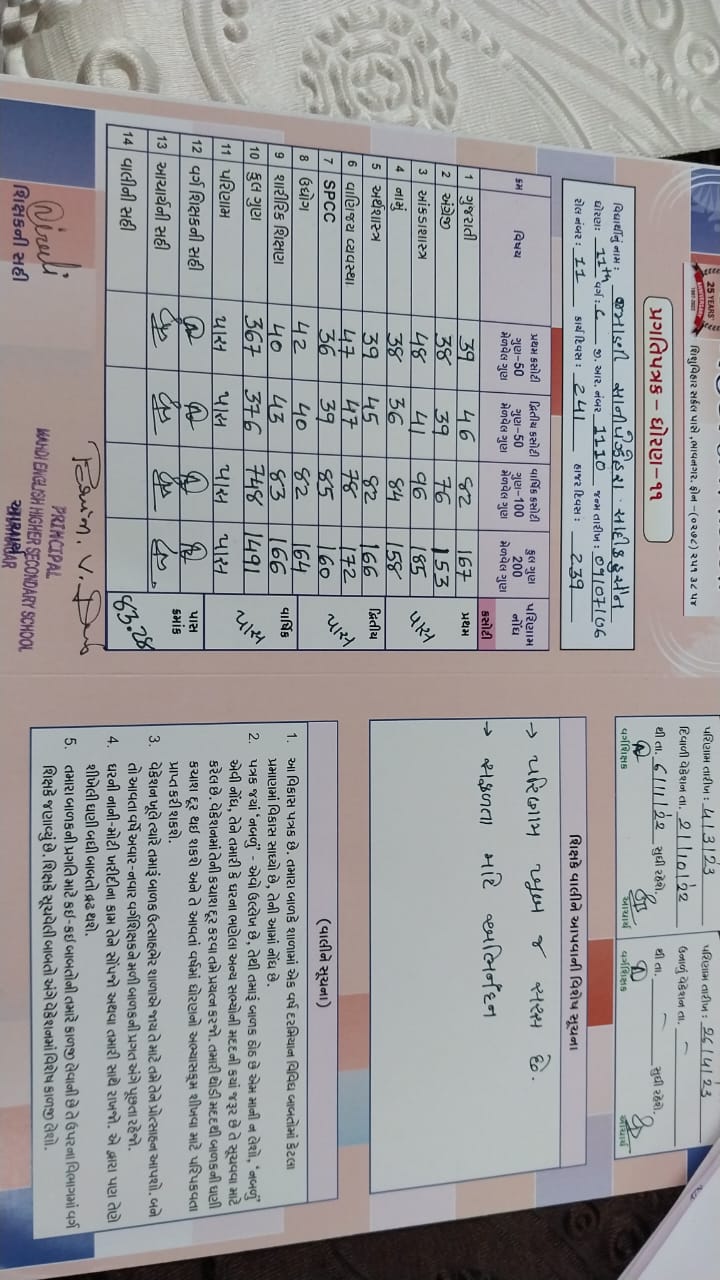 25 YEARS'
શિશુવિહાર સર્કલ પાસે, ભાવનગર. ફોન - (૦૨૭૮) ૨૫૧ ૩૮ ૫૪
પ્રગતિપત્રક - ધોરણ-૧૧
વિદ્યાર્થીનું નામ :
ધોરણ : 11th વર્ગ : C જી. આર. નંબર 1110 જન્મ તારીખ : 07/07/06
રોલ નંબર : 11 કાર્ય દિવસ : 241 હાજર દિવસ : 239
ક્રમ વિષય પ્રથમ કસોટી ગુણ-50 મેળવેલ ગુણ દ્વિતીય કસોટી ગુણ-50 મેળવેલ ગુણ વાર્ષિક કસોટી ગુણ-100 મેળવેલ ગુણ કુલ ગુણ 200 મેળવેલ ગુણ પરિણામ નોંધ
કસોટી
1 ગુજરાતી 39 46 82 167 પ્રથમ
2 અંગ્રેજી 38 39 76 153
3 આંકડાશાસ્ત્ર 48 41 96 185 પાસ
4 નામું 38 36 84 158
5 અર્થશાસ્ત્ર 39 45 82 166 દ્વિતીય
6 વાણિજ્ય વ્યવસ્થા 47 47 78 172
7 SPCC 36 39 85 160 પાસ
8 ઉદ્યોગ 42 40 82 164
9 શારીરિક શિક્ષણ 40 43 83 166 વાર્ષિક
10 કુલ ગુણ 367 376 748 1491 પાસ
11 પરિણામ પાસ પાસ પાસ પાસ
12 વર્ગ શિક્ષકની સહી પાસ ક્રમાંક
13 આચાર્યની સહી
14 વાલીની સહી 83.28
શિક્ષકની સહી
PRINCIPAL
MAHDI ENGLISH HIGHER SECONDARY SCHOOL
પરિણામ તારીખ : 4/3/23
દિવાળી વેકેશન તા. 21/10/22
થી તા. 6/11/22 સુધી રહેશે.
વર્ગશિક્ષક આચાર્ય
પરિણામ તારીખ : 26/4/23
ઉનાળું વેકેશન તા. —
થી તા. — સુધી રહેશે.
વર્ગશિક્ષક આચાર્ય
શિક્ષકે વાલીને આપવાની વિશેષ સૂચના
→ પરિણામ ખુબ જ સરસ છે.
→ સફળતા માટે અભિનંદન
(વાલીને સૂચના)
1. આ વિકાસ પત્રક છે. તમારા બાળકે શાળામાં એક વર્ષ દરમિયાન વિવિધ બાબતોમાં કેટલા
પ્રમાણમાં વિકાસ સાધ્યો છે, તેની આમાં નોંધ છે.
2. પત્રક જ્યાં 'નબળું' - એવો ઉલ્લેખ છે, તેથી તમારું બાળક ઠોઠ છે એમ માની ન લેશો, 'નબળું'
એવી નોંધ, તેને તમારી કે ઘરના ભણેલા અન્ય સભ્યોની મદદની ક્યાં જરૂર છે તે સૂચવવા માટે
કરેલ છે. વેકેશનમાં તેની કચાશ દૂર કરવા તમે પ્રયત્ન કરજો. તમારી થોડી મદદથી બાળકની ઘણી
કચાશ દૂર થઈ શકશે અને તે આવતાં વર્ષમાં ધોરણનો અભ્યાસક્રમ શીખવા માટે પરિપક્વતા
પ્રાપ્ત કરી શકશે.
3. વેકેશન ખુલે ત્યારે તમારું બાળક ઉત્સાહભેર શાળાએ જાય તે માટે તમે તેને પ્રોત્સાહન આપશો. બને
તો આવતા વર્ષે અવાર-નવાર વર્ગશિક્ષકને મળી બાળકની પ્રગત અંગે પૂછતા રહેજો.
4. ઘરની નાની-મોટી ખરીદીના કામ તેને સોંપજો અથવા તમારી સાથે રાખજો. એ દ્વારા પણ તેણે
શીખેલી ઘણી બધી બાબતો દ્રઢ થશે.
5. તમારા બાળકની પ્રગતિ માટે કઈ-કઈ બાબતોની તમારે કાળજી લેવાની છે તે ઉપરના વિભાગમાં વર્ગ
શિક્ષકે જણાવ્યું છે. શિક્ષકે સૂચવેલી બાબતો અંગે વેકેશનમાં વિશેષ કાળજી લેશો.